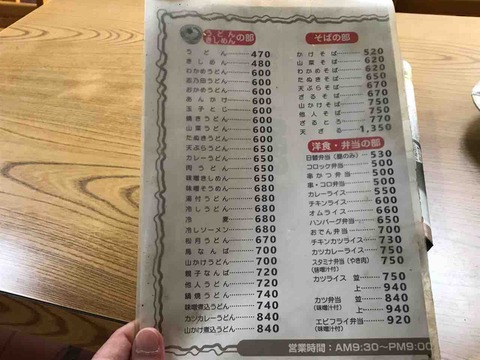 うどん
きしめんの部
うどん 470
きしめん 480
わかめうどん 600
志乃田うどん 600
おかめうどん 600
あんかけ 600
玉子とじ 600
焼きうどん 600
山菜うどん 600
たぬきうどん 600
天ぷらうどん 650
カレーうどん 650
肉うどん 650
味噌きしめん 680
味噌そうめん 680
湯付うどん 680
冷しうどん 680
冷麦 680
冷しソーメン 680
松月うどん 670
鳥なんば 700
山かけうどん 700
親子なんば 720
他人うどん 720
鍋焼うどん 740
味噌煮込うどん 740
カツカレーうどん 840
山かけ煮込うどん 840
そばの部
かけそば 520
山菜そば 620
わかめそば 620
たぬきそば 650
天ぷらそば 670
ざるそば 670
山かけそば 750
他人そば 750
ざるとろ 770
天ざる 1,350
洋食・弁当の部
日替弁当(昼のみ) 530
コロッケ弁当 500
串かつ弁当 500
串・コロ弁当 500
カレーライス 550
チキンライス 600
オムライス 660
ハンバーグ弁当 650
おでん弁当 700
チキンカツライス 730
カツカレーライス 750
スタミナ弁当(やき肉) 750
(味噌汁付)
カツライス 並 750
上 940
カツ弁当 並 840
(味噌汁付) 上 940
エビフライ弁当 920
(味噌汁付)
営業時間:AM9:30~PM9:00